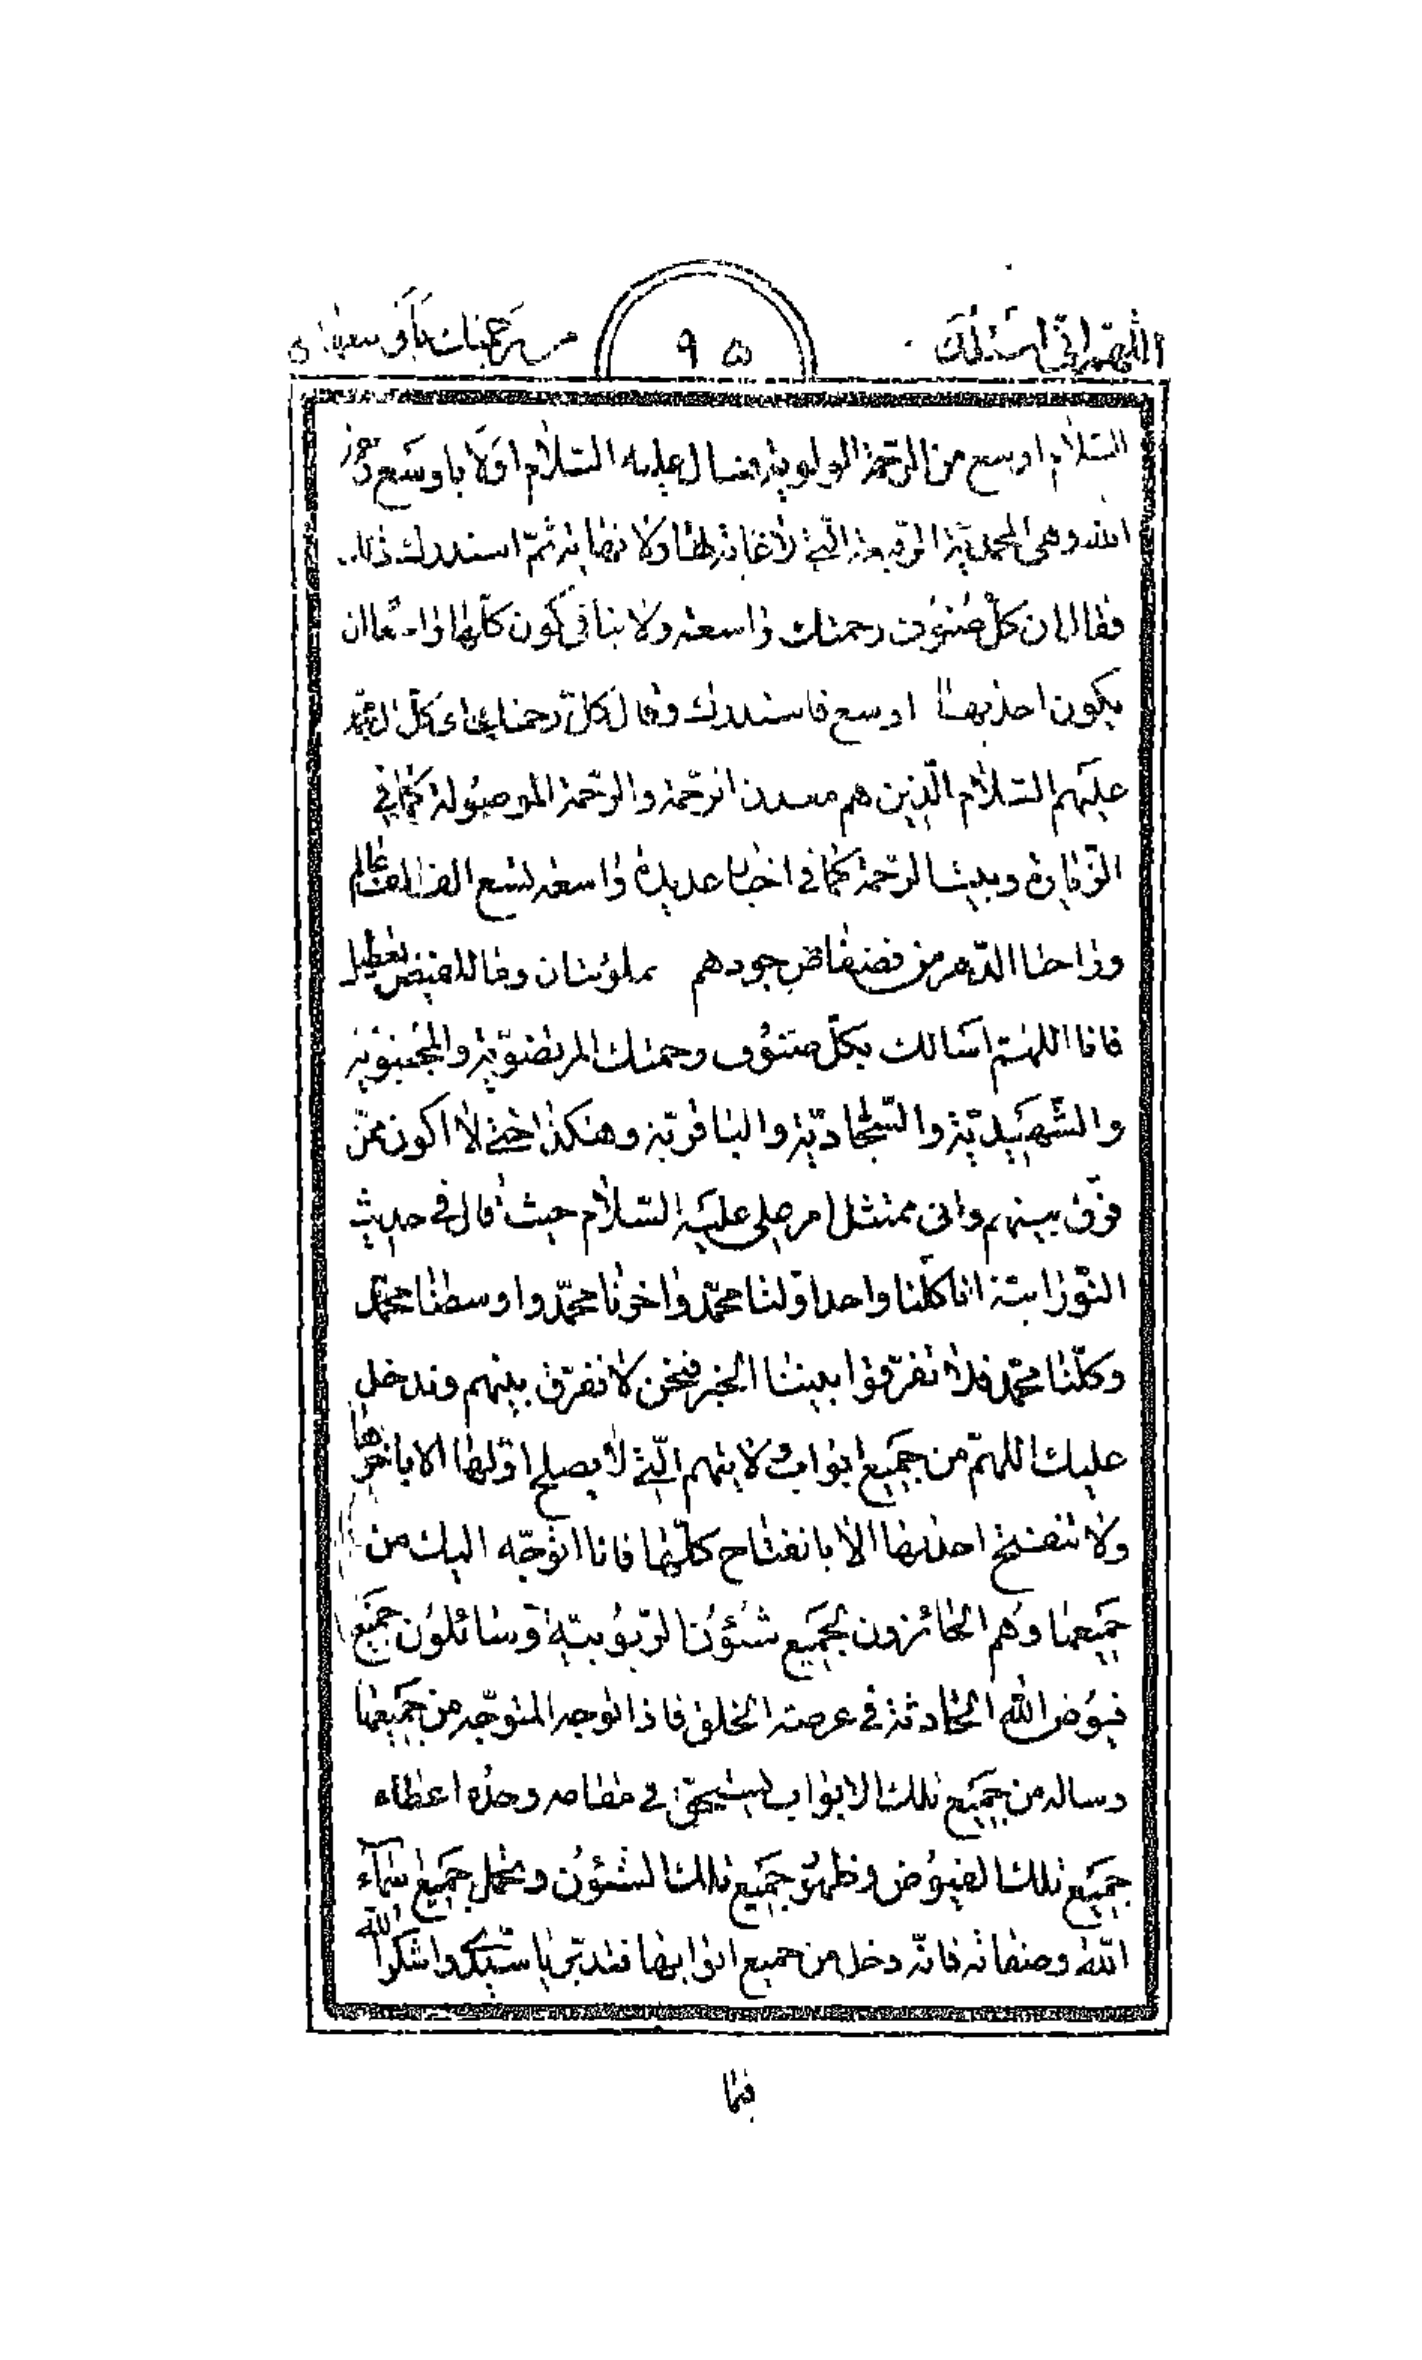 اللهم انی اسئلک ٩٥ من رحمتك باوسعها
السلام اوسع من الرحمة الولوية فسال عليه السلام اولا باوسع رحمة
الله وهی المحمدية الرفيعة التی لا غاية لها ولا نهاية ثم استدرك ذلك
فقال ان كل شئون رحمتك واسعة ولا ينافی كون كلها واسعا ان
يكون احديها اوسع فاستدرك وقال كل رحمتك ای كل الائمة
عليهم السلام الذين هم معدن الرحمة والرحمة الموصولة كما فی
الزيارة وبيت الرحمة كما فی اخبار عديدة واسعة تسع الف الف عالم
من فضفاض جودهم مملوئتان وما للفيض تعطيل
فانا اللهم اسالك بكل شئون رحمتك المرتضوية والمجتبوية
والشهيدية والسجادية والباقرية وهكذا حتی لا اكون ممن
فرق بينهم وانی ممتثل امر علی عليه السلام حيث قال فی حديث
النورانية انا كلنا واحد اولنا محمد واخرنا محمد واوسطنا محمد
وكلنا محمد فلا تفرقوا بيننا الخبر فنحن لا نفرق بينهم وندخل
عليك اللهم من جميع ابواب ولايتهم التی لا يصلح اولها الا باخرها
ولا تنفتح احديها الا بانفتاح كلها فانا اتوجه اليك من
جميعها وهم الحائزون لجميع شئون الربوبية وسائلون جميع
فيوض الله الحادثة فی عرصة الخلق فاذا توجه المتوجه من جميعها
وساله من جميع تلك الابواب ليستحق فی مقامه وحده اعطاء
جميع تلك الفيوض وظهور جميع تلك الشئون وتحمل جميع اسماء
الله وصفاته فانه دخل من جميع ابوابها فتدبر يا سيدی واشكر الله
فيما